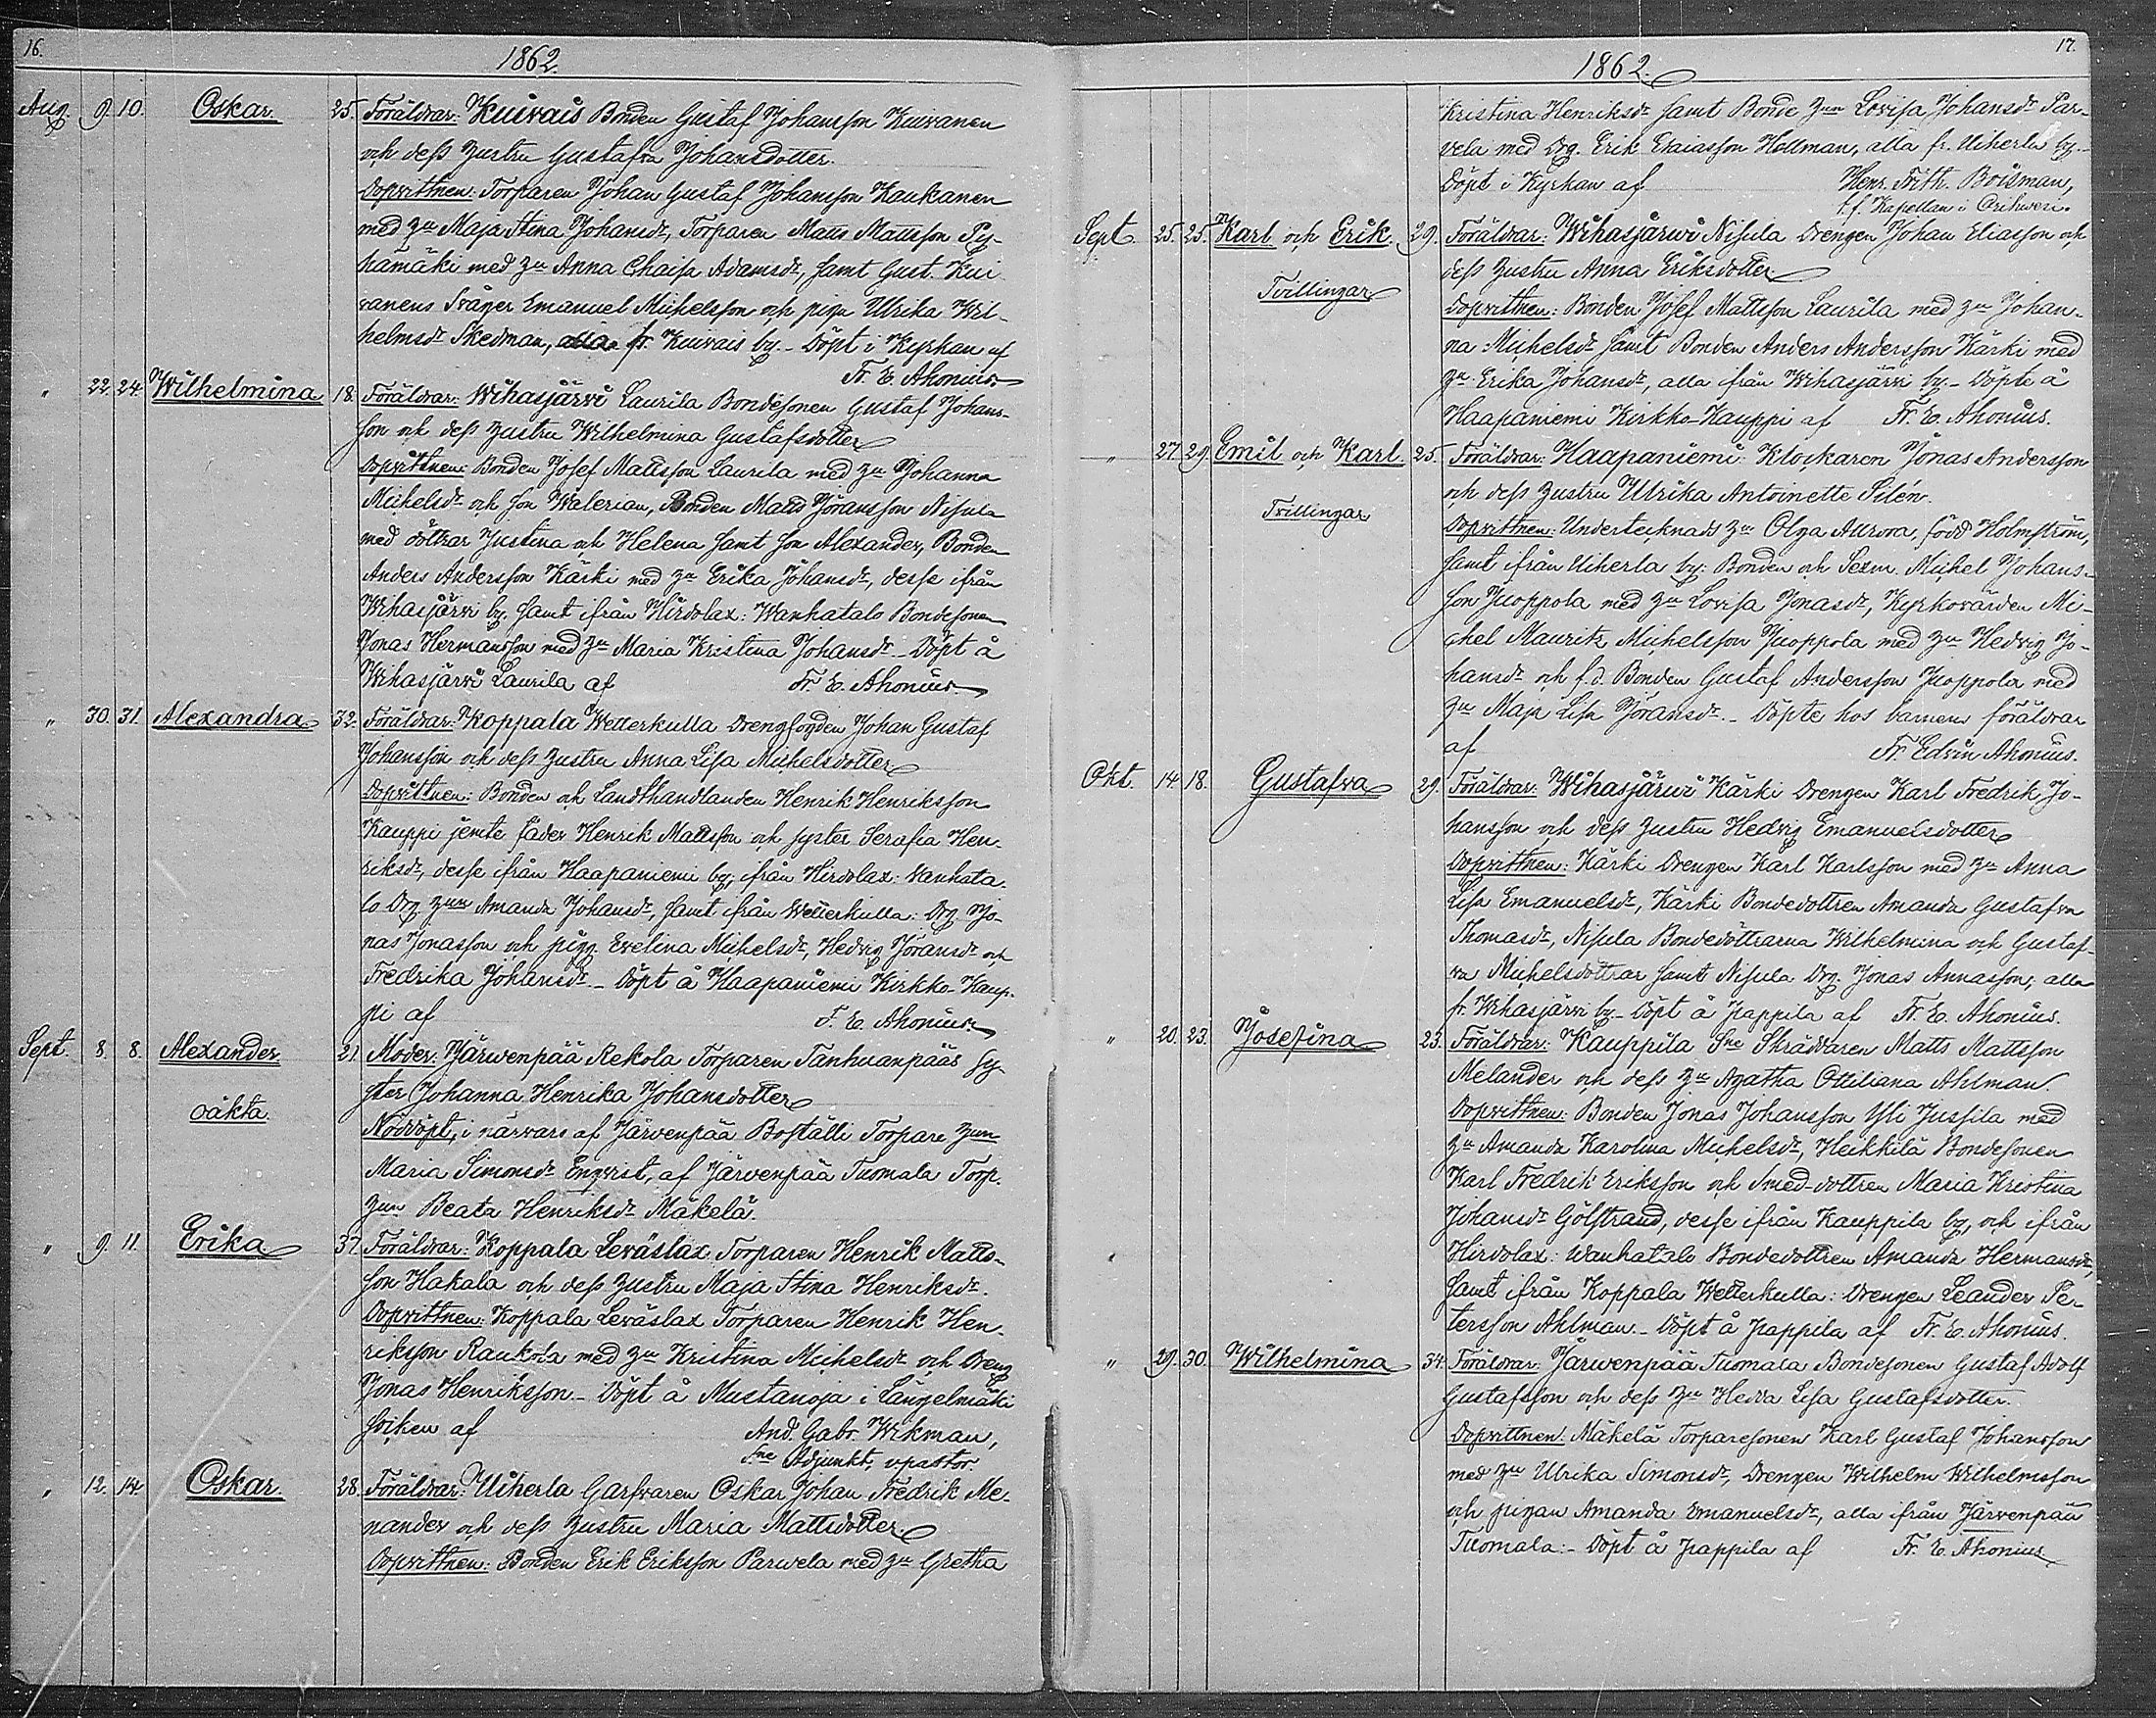 16.
1862.
Aug. 9. 10. Oskar. 25. Föräldrar: Kuivais Bonden Gustaf Johansson Kuivanen
och dess hustru Gustafva Johansdotter.
Dopvittnen: Torparen Johan Gustaf Johansson Kaukanen
med hu Maja Stina Johansdr, Torparen Matts Mattsson Py-
hämäki med hu Anna Chaisa Adamsdr, samt Gust. Kui-
vanens Svåger Emanuel Michelsson och pigu Ulrika Wil-
helmsdr Skedman, alla fr. Kuivais by. Döpt i Kyrkan af
Fr. E. Ahonius
" 22. 24. Wilhelmina 18. Föräldrar: Wihasjärvi Laurila Bondesonen Gustaf Johans-
son och dess hustru Wilhelmina Gustafsdotter
Dopvittnen: Bonden Josef Mattsson Laurila med hu Johanna
Michelsdr och son Walerian, Bonden Matts Jöransson Nisula
med döttrar Justina och Helena samt son Alexander, Bonden
Anders Andersson Kärki med hu Erika Johansdr, desse ifrån
Wihasjärvi by, samt ifrån Hirdolax: Wanhatalo Bondesonen
Jonas Hermansson med hu Maria Kristina Johansdr. Döpt å
Wihasjärvi Laurila af Fr. E. Ahonius
" 30. 31. Alexandra 32. Föräldrar: Koppala Wetterkulla Drengfogden Johan Gustaf
Johansson och dess hustru Anna Lisa Michelsdotter
Dopvittnen: Bonden och Landthandlanden Henrik Henriksson
Kauppi jemte fader Henrik Mattsson och syster Serafia Hen-
riksdr, desse ifrån Haapaniemi by; ifrån Hirdolax: Vanhata-
lo Drg hun Amanda Johansdr, samt ifrån Wetterkulla: Drg. Jo-
nas Jonasson och pigg. Evelina Michelsdr, Hedvig Jöransdr och
Fredrika Johansdr. Döpt å Haapaniemi Kirkko-Kaup-
pi af F. E. Ahonius.
Sept. 8. 8. Alexander 21. Moder: Järwenpää Rekola Torparen Tanhuanpääs sy-
oäkta. ster Johanna Henrika Johansdotter
Nöddöpt, i närvaro af Järvenpää Boställi Torpare hun
Maria Simonsdr Enqvist, af Järvenpää Tuomala Torp.
hun Beata Henriksdr Mäkelä.
" 9. 11. Erika 37. Föräldrar: Koppala Leväslax Torparen Henrik Matts-
son Hakala och dess hustru Maja Stina Henriksdr.
Dopvittnen: Koppala Leväslax Torparen Henrik Hen-
riksson Raukola med hu Kristina Michelsdr och Dreng
Jonas Henriksson. Döpt å Mustanoja i Längelmäki
socken af And. Gabr. Wikman,
Sne Adjunkt, vpastor.
" 12. 14. Oskar. 28. Föräldrar: Uiherla Garfvaren Oskar Johan Fredrik Me-
nander och dess hustru Maria Mattsdotter
Dopvittnen: Bonden Erik Eriksson Parwela med hu Gretha
17.
1862.
Kristina Henriksdr samt Bonde hun Lovisa Johansdr Par-
vela med Drg. Erik Esaiasson Hollman, alla fr. Uiherla by.
Döpt i Kyrkan af Henr. Frith. Boisman,
t. f. Kapellan i Orihwesi.
Sept. 25. 25. Karl och Erik. 29. Föräldrar: Wihasjärwi Nisula Drengen Johan Eliasson och
Tvillingar dess hustru Anna Eriksdotter
Dopvittnen: Bonden Josef Mattsson Laurila med hu Johan-
na Michelsdr samt Bonden Anders Andersson Kärki med
hu Erika Johansdr, alla ifrån Wihasjärvi by. Döpte å
Haapaniemi Kirkko-Kauppi af Fr. E. Ahonius.
" 27. 29. Emil och Karl 25. Föräldrar: Haapaniemi: Klockaren Jonas Andersson
Tvillingar och dess hustru Ulrika Antoinette Silén.
Dopvittnen: Undertecknads hu Olga Aurora, född Holmström,
samt ifrån Uiherla by: Bonden och Sexm. Michel Johans-
son Juoppola med hu Lovisa Jonasdr, Kyrkovärden Mi-
chel Mauritz Michelsson Juoppola med hu Hedvig Jo-
hansdr och f.d. Bonden Gustaf Andersson Juoppola med
hu Maja Lisa Jöransdr. Döpte hos barnens föräldrar
af Fr. Edvin Ahonius.
Okt. 14. 18. Gustafva 29. Föräldrar: Wihasjärwi Kärki Drengen Karl Fredrik Jo-
hansson och dess hustru Hedvig Emanuelsdotter
Dopvittnen: Kärki Drengen Karl Karlsson med hu Anna
Lisa Emanuelsdr, Kärki Bondedottren Amanda Gustafva
Thomasdr, Nisula Bondedöttrarna Wilhelmina och Gustaf-
va Michelsdöttrar samt Nisula Drg. Jonas Annasson; alla
fr. Wihasjärvi by. Döpt å Pappila af Fr. E. Ahonius.
" 20. 23. Josefina 23. Föräldrar: Kauppila Sne Skräddaren Matts Mattsson
Melander och dess hu Agatha Ottiliana Ahlman.
Dopvittnen: Bonden Jonas Johansson Yli Jussila med
hu Amanda Karolina Michelsdr, Heikkilä Bondesonen
Karl Fredrik Eriksson och Smed-dottren Maria Kristina
Johansdr Gölstrand, desse ifrån Kauppila by, och ifrån
Hirdolax: Wanhatalo Bondedottren Amanda Hermansdr,
samt ifrån Koppala Wetterkulla: Drengen Leander Pe-
tersson Ahlman. Döpt å Pappila af Fr. E. Ahonius.
" 29. 30. Wilhelmina 34. Föräldrar: Järwenpää Tuomala Bondesonen Gustaf Adolf
Gustafsson och dess hu Hedda Lisa Gustafsdotter.
Dopvittnen: Mäkelä Torparesonen Karl Gustaf Johansson
med hu Ulrika Simonsdr, Drengen Wilhelm Wilhelmsson
och pigan Amanda Emanuelsdr, alla ifrån Järvenpää
Tuomala. Döpt å Pappila af Fr. E. Ahonius